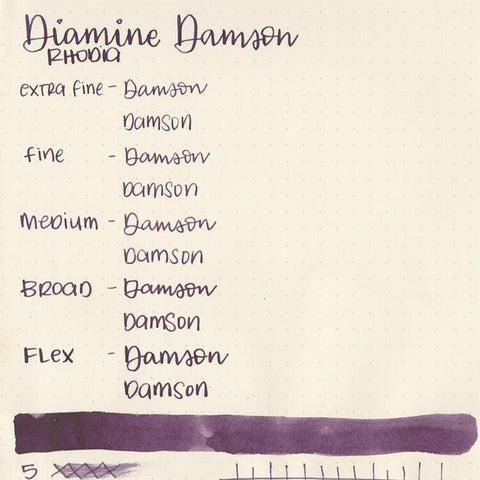 Diamine Damson
RHODIA
extra fine - Damson
Damson
fine - Damson
Damson
Medium - Damson
Damson
BROAD - Damson
Damson
FLex - Damson
Damson
5